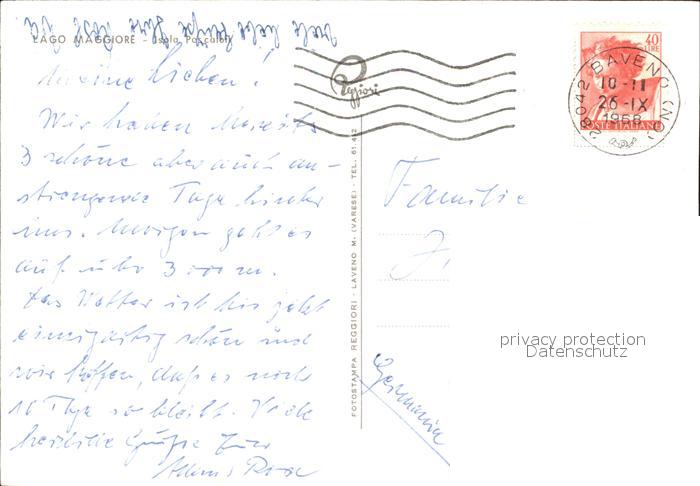 LAGO MAGGIORE - Isola Pescatori
Meine Lieben!
Wir haben bereits
3 schöne aber auch an-
strengende Tage hinter
uns. Morgen geht es
auf über 3000 m.
Das Wetter ist bis jetzt
einzigartig schön und
wir hoffen, daß es noch
10 Tage so bleibt. Viele
herzliche Grüße Eure
viele liebe Grüße
Reggiori
FOTOSTAMPA REGGIORI - LAVENO M. (VARESE) - TEL. 61.412
40
LIRE
POSTE ITALIANE
28042 BAVENO (NO)
10-11
26-IX
1968
Familie
Germania
privacy protection
Datenschutz